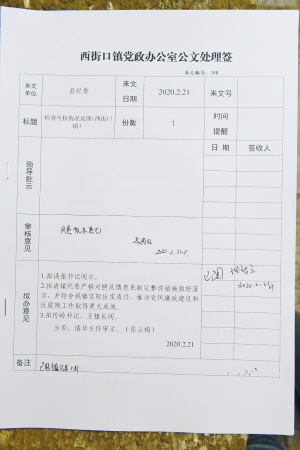 西街口镇党政办公室公文处理签
来文编号：318
来文单位 县纪委 来文日期 2020.2.21 来文号
标题 检查考核情况反馈（西街口镇） 份数 1 时间提醒
领导批示 日期 签收人
审核意见 同意拟办意见
2020.2.24
已阅
2020.2.24
拟办意见 1.拟请张书记阅示。
2.拟请镇纪委严格对照反馈意见制定整改措施抓好落
实，并结合我镇实际压实责任，推动党风廉政建设和
反腐败工作取得更大成效。
3.拟传岭书记、王镇长阅。
当否，请华主任审示。（昂云梅）
2020.2.21
备注